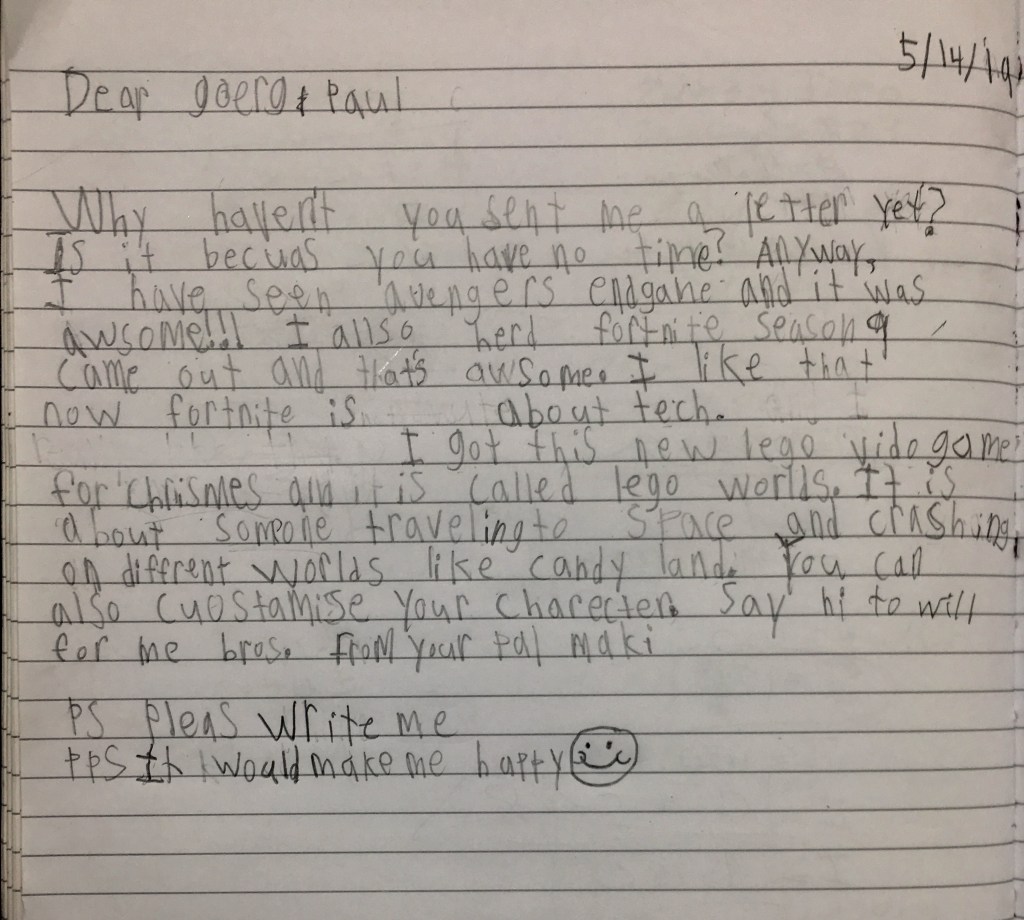 5/14/19
Dear goerg & Paul
Why haven't you sent me a letter yet?
Is it becuas you have no time? Anyway,
I have seen avengers endgane and it was
awsome!!! I allso herd fortnite season 9
came out and that's awsome. I like that
now fortnite is about tech.
I got this new lego vido game
for chrismes and it is called lego worlds. It is
about someone traveling to space and crashing
on diffrent worlds like candy land. You can
also cuostamise your charecter. Say hi to will
for me bros. From your pal maki
PS pleas write me
PPS It would make me happy